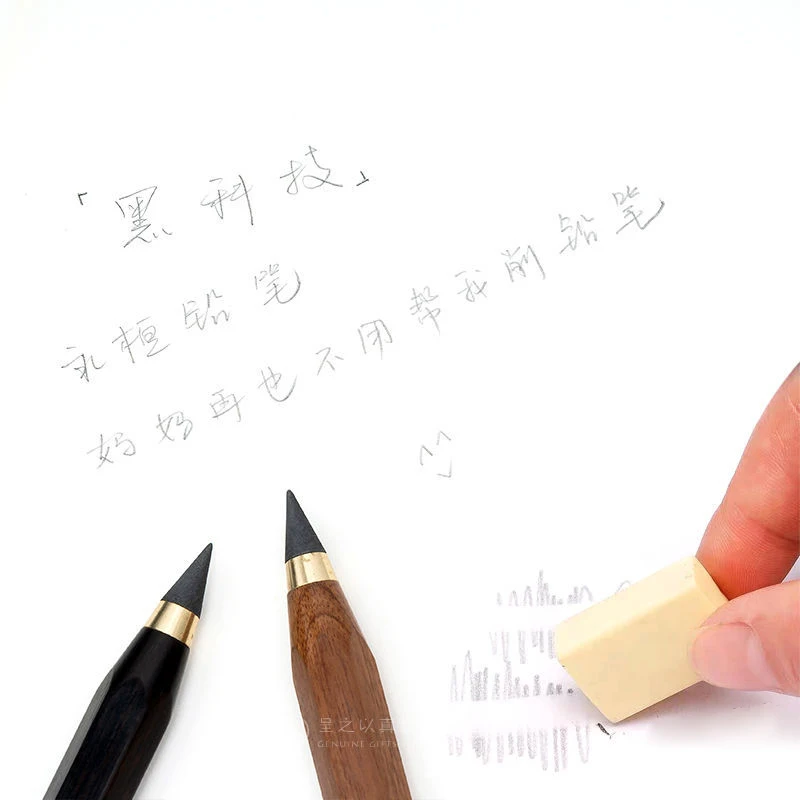 「黑科技」
永恒铅笔
妈妈再也不用帮我削铅笔
呈之以真
GENUINE GIFTS